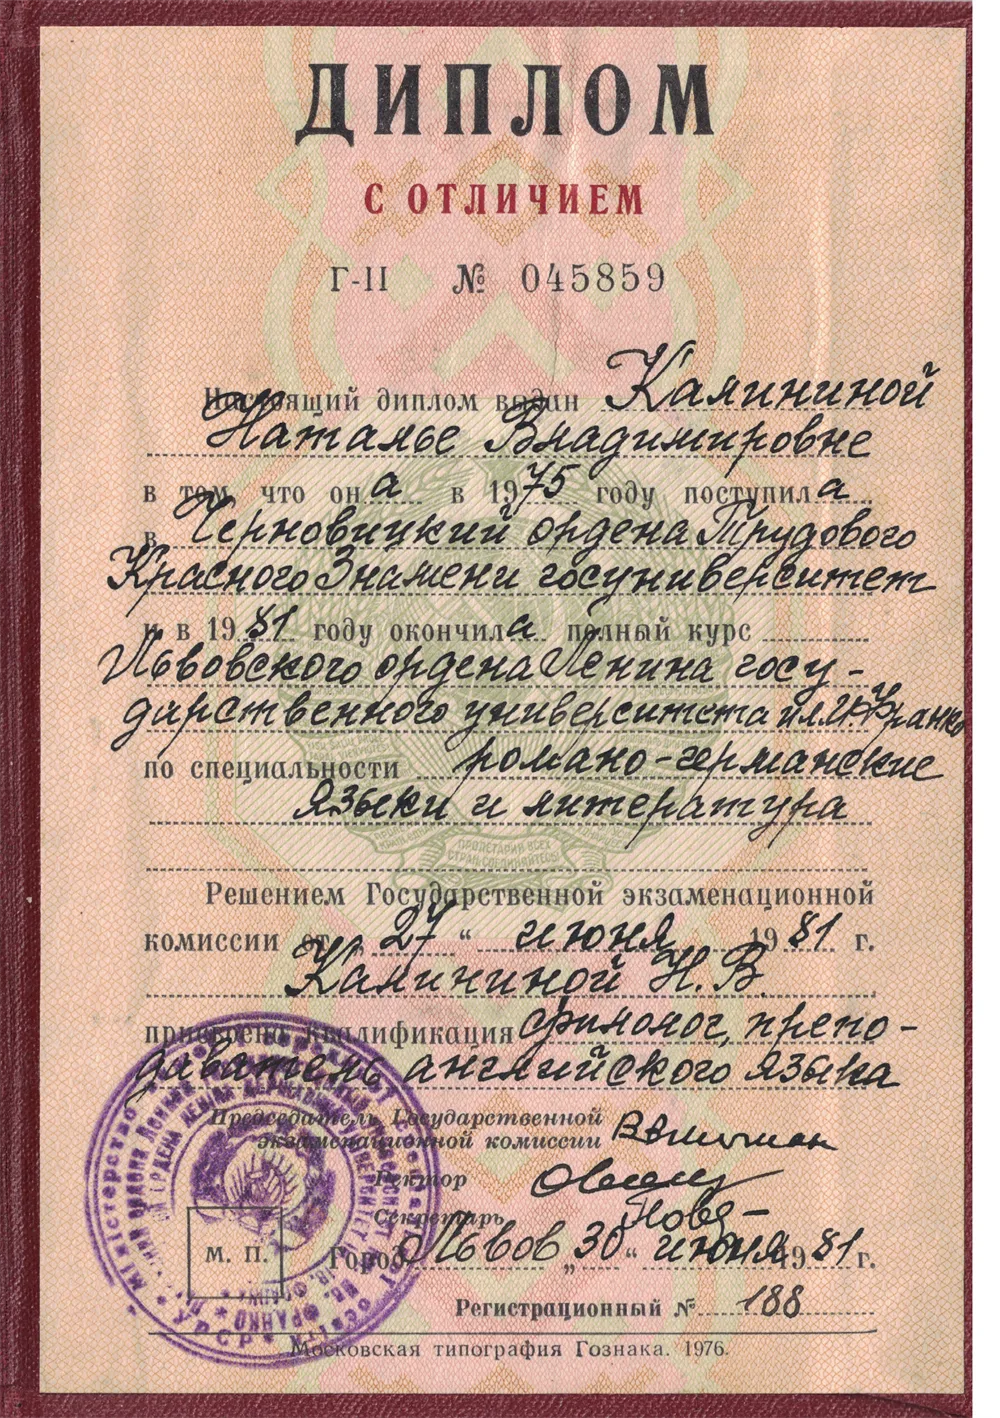 ДИПЛОМ
С ОТЛИЧИЕМ
Г-II № 045859
Настоящий диплом выдан Калининой
Наталье Владимировне
в том что она в 1975 году поступила
в Черновицкий ордена Трудового
Красного Знамени госуниверситет
и в 1981 году окончила полный курс
Львовского ордена Ленина госу-
дарственного университета им. И. Франко
по специальности романо-германские
языки и литература
ПРОЛЕТАРИИ ВСЕХ
СТРАН, СОЕДИНЯЙТЕСЬ!
Решением Государственной экзаменационной
комиссии от „27“ июня 1981 г.
Калининой Н. В.
присвоена квалификация филолог, препо-
даватель английского языка
Председатель Государственной
экзаменационной комиссии
Ректор
Секретарь
М. П. Город Львов „30“ июня 1981 г.
Регистрационный № 188
Московская типография Гознака. 1976.